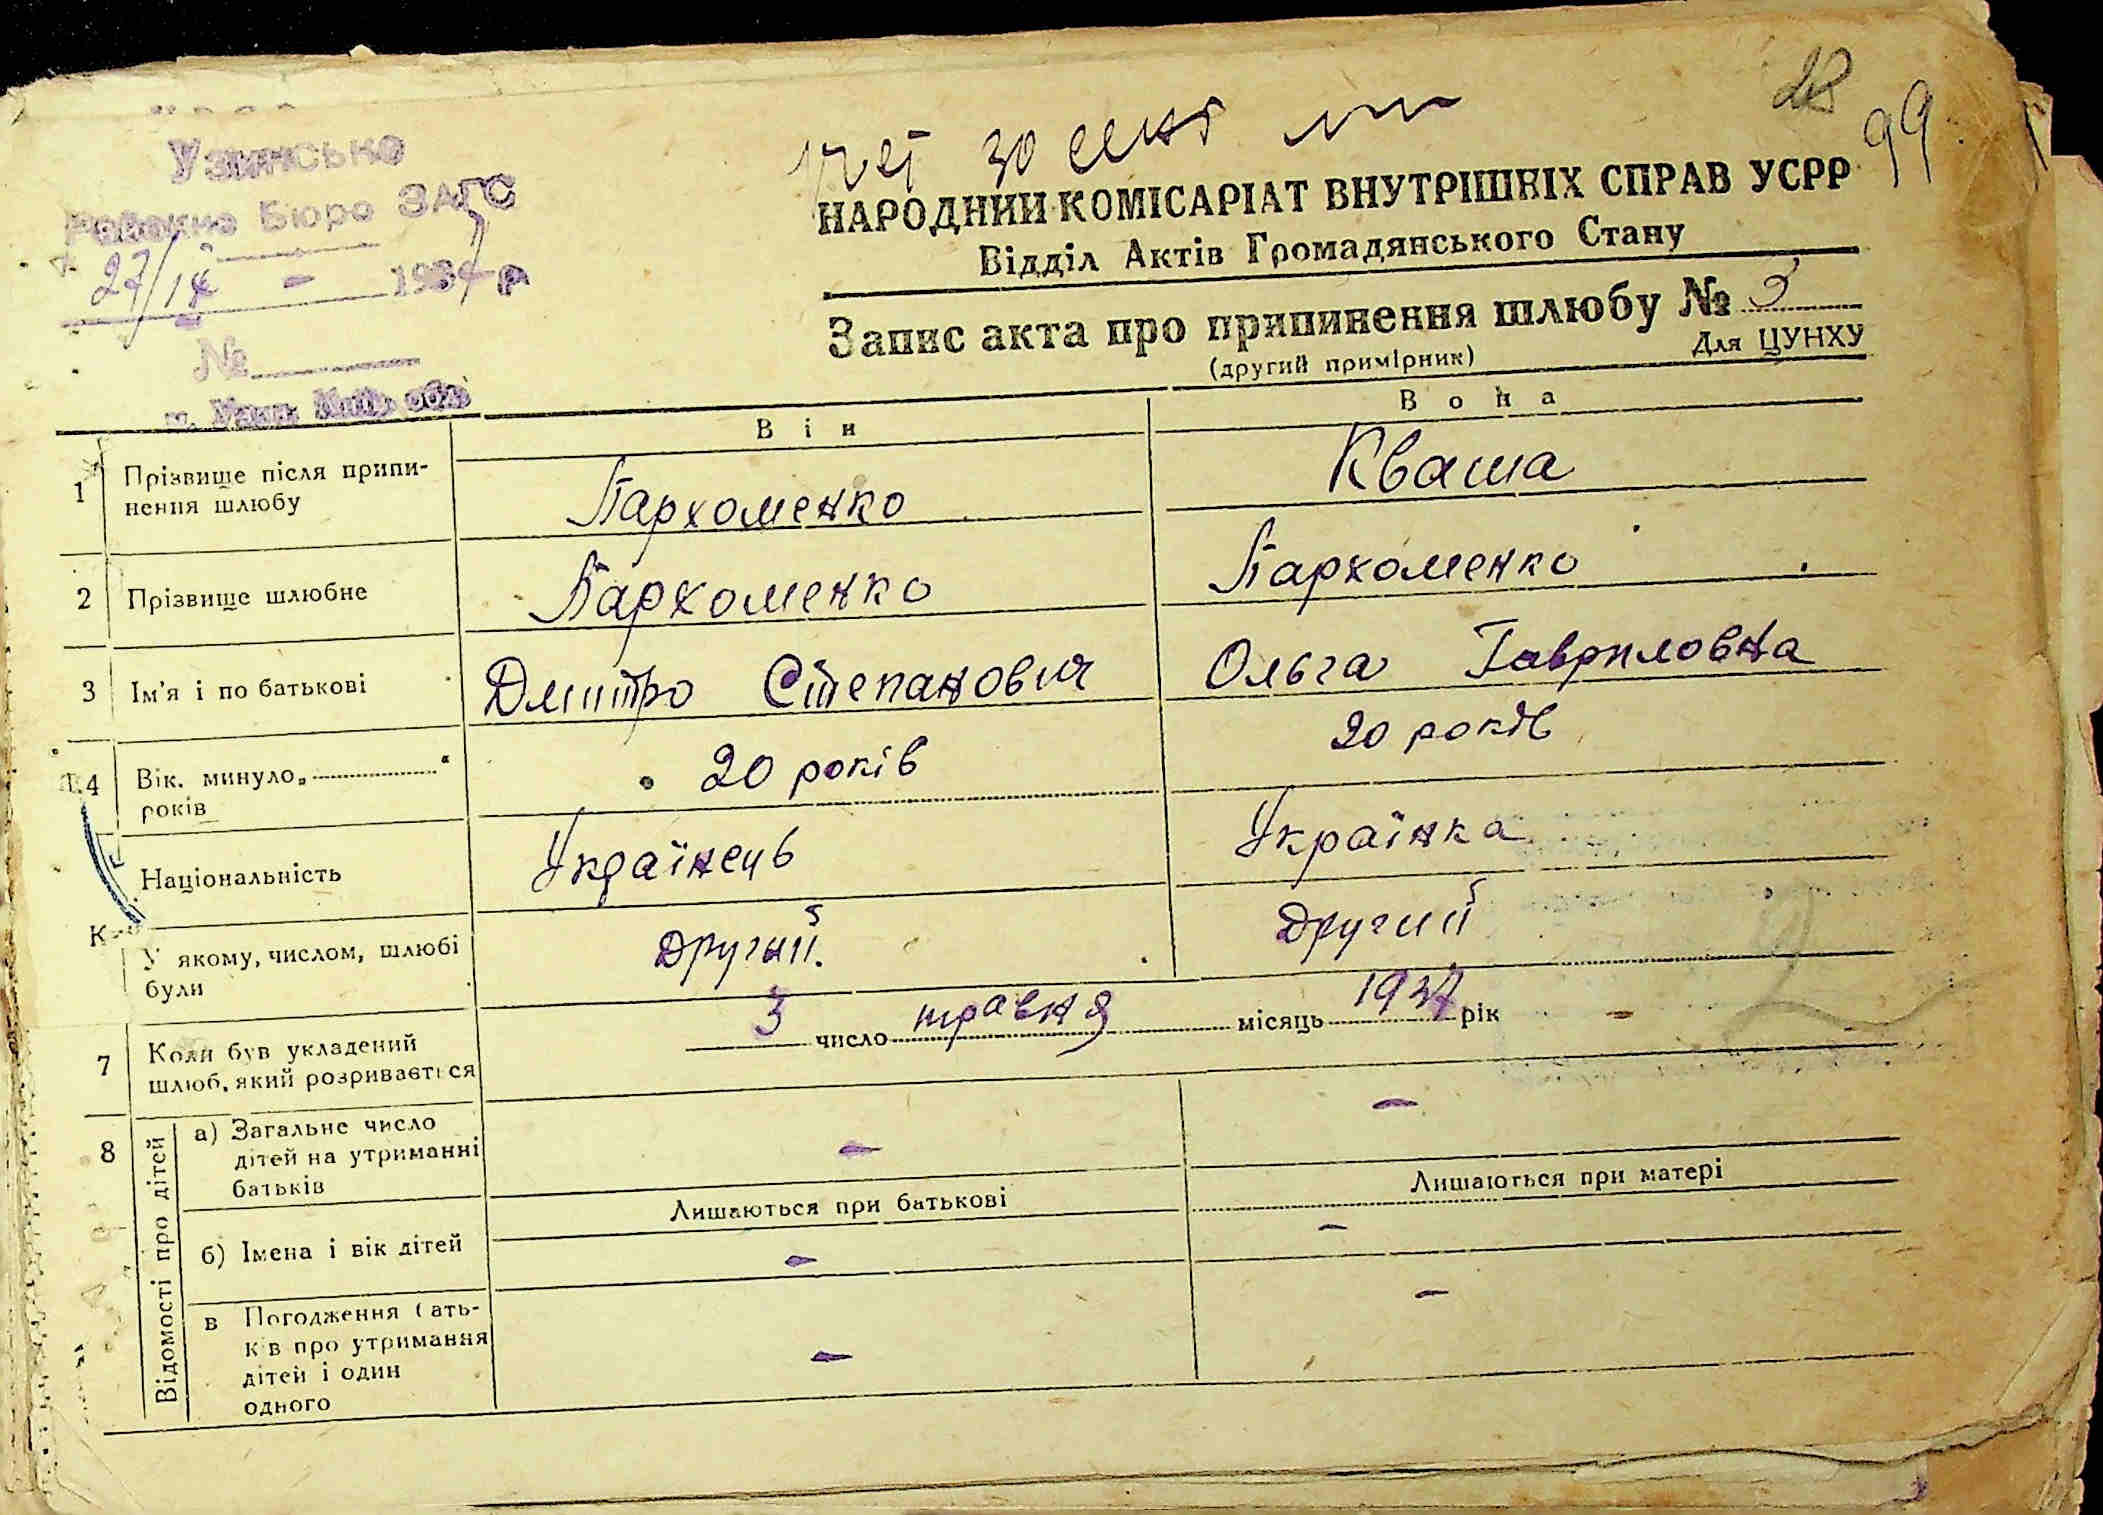 Узинське
Районне Бюро ЗАГС
27/ІХ - 1937 р
№
м. Узин, Київ. обл.
28
99
НАРОДНИЙ КОМІСАРІАТ ВНУТРІШНІХ СПРАВ УСРР
Відділ Актів Громадянського Стану
Запис акта про припинення шлюбу № 3
(другий примірник)
Для ЦУНХУ
Він
Вона
1 Прізвище після припи-
нення шлюбу
Пархоменко
Кваша
2 Прізвище шлюбне
Пархоменко
Пархоменко
3 Ім'я і по батькові
Дмитро Степанович
Ольга Гавриловна
4 Вік. минуло „ “
років
20 років
20 років
Національність
Українець
Українка
У якому, числом, шлюбі
були
Другий.
Другий
7 Коли був укладений
шлюб, який розривається
3 число травня місяць 1937 рік
8 Відомості про дітей
а) Загальне число
дітей на утриманні
батьків
-
-
б) Імена і вік дітей
Лишаються при батькові
Лишаються при матері
-
-
в Погодження ( ать-
к в про утримання
дітей і один
одного
-
-